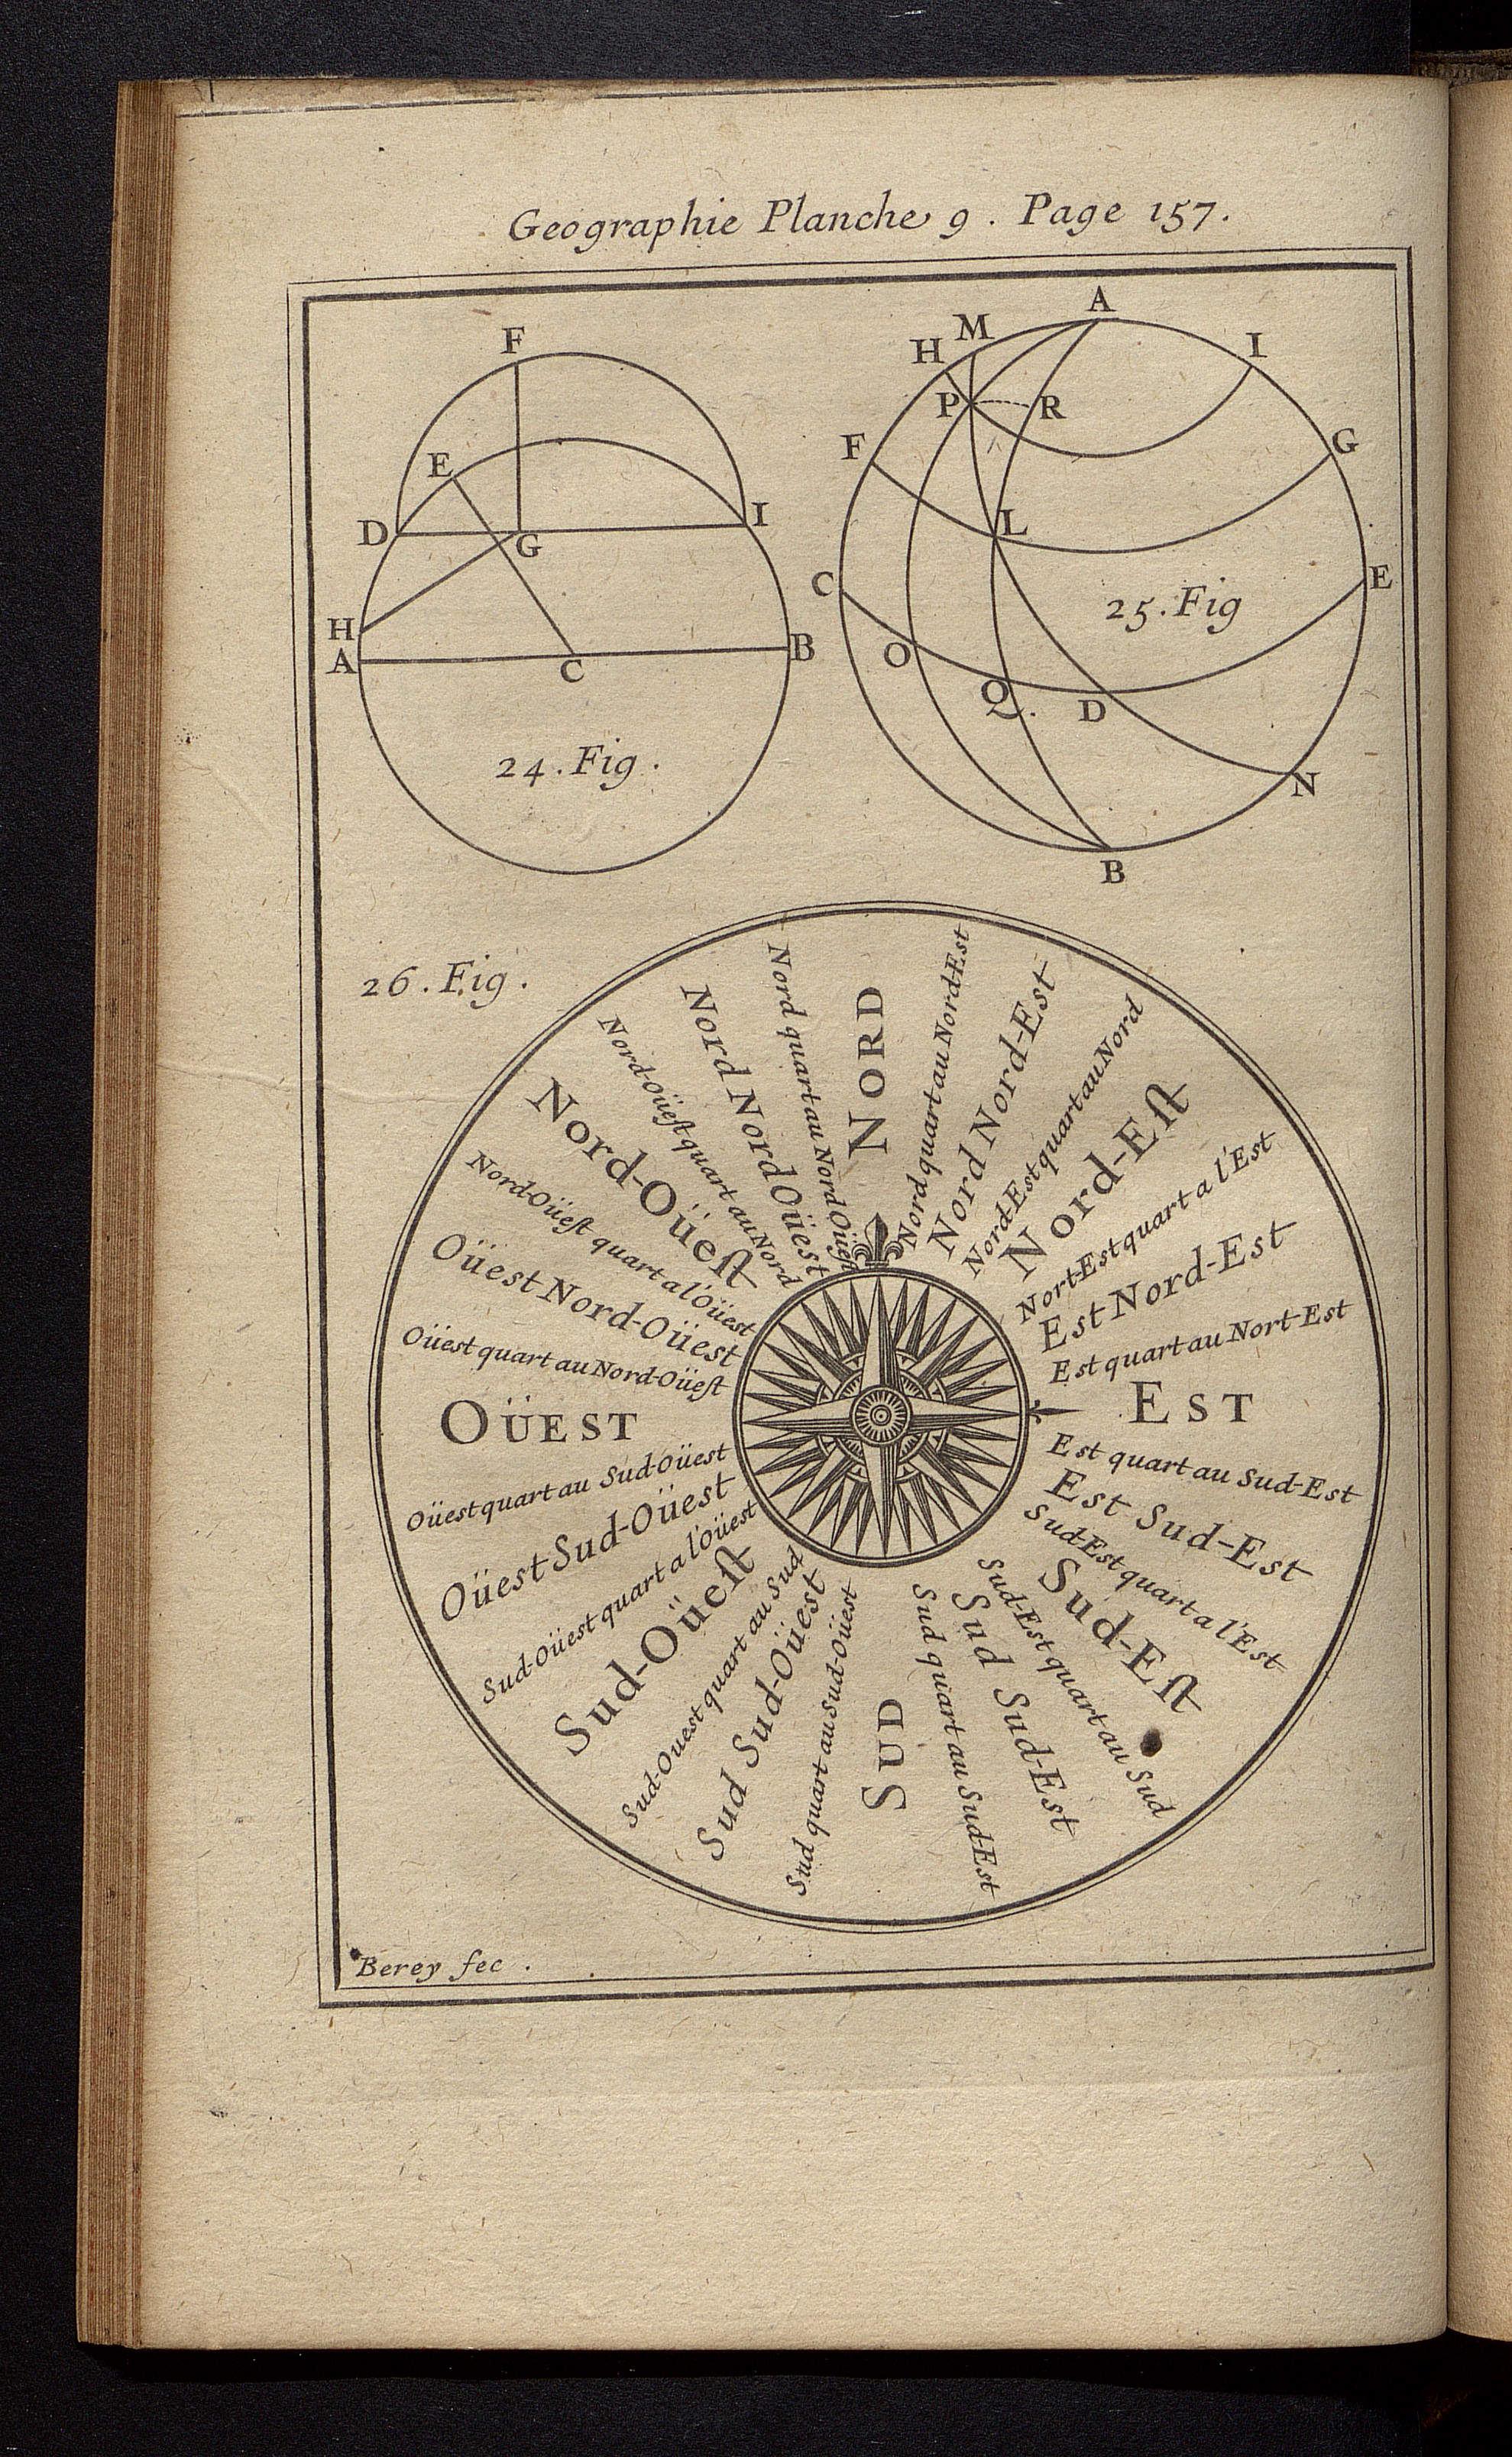 Geographie Planche 9. Page 157.
F
E
D
G
I
H
A
C
B
24. Fig.
A
M
H
I
P
R
F
G
L
C
E
25. Fig
O
Q.
D
N
B
26. Fig.
NORD
Nord quart au Nord-Est
Nord Nord-Est
Nord Est quart au Nord
Nord-Eſt
Nort-Est quart a l'Est
Est Nord-Est
Est quart au Nort-Est
EST
Est quart au Sud-Est
Est Sud-Est
Sud-Est quart a l'Est
Sud-Eſt
Sud-Est quart au Sud
Sud Sud-Est
Sud quart au Sud-Est
SUD
Sud quart au Sud-Oüest
Sud Sud-Oüest
Sud-Ouest quart au Sud
Sud-Oüeſt
Sud-Oüest quart a l'Oüest
Oüest Sud-Oüest
Oüest quart au Sud-Oüest
OÜEST
Oüest quart au Nord-Oüeſt
Oüest Nord-Oüest
Nord-Oüeſt quart a l'Oüest
Nord-Oüeſt
Nord-Oüeſt quart au Nord
Nord Nord Oüest
Nord quart au Nord Oüest
Berey fec.